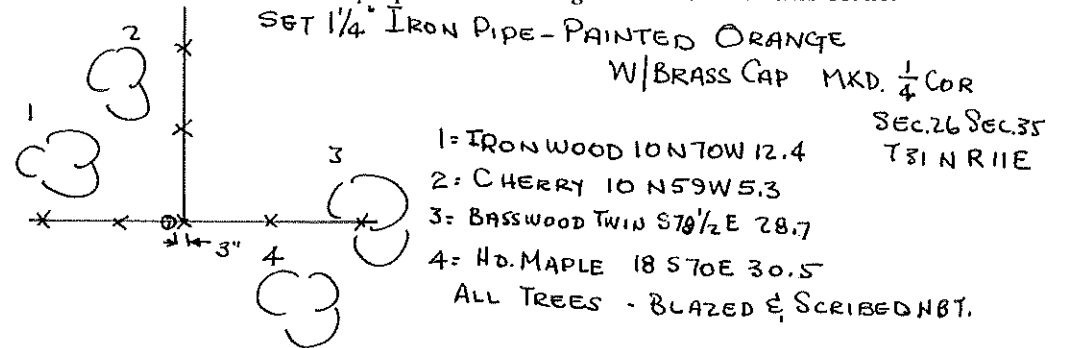 SET 1 1/4" IRON PIPE - PAINTED ORANGE
W/BRASS CAP MKD. 1/4 COR
SEC.26 SEC.35
T31N R11E
1
2
3
4
3"
1= IRONWOOD 10 N70W 12.4
2= CHERRY 10 N59W 5.3
3= BASSWOOD TWIN S78 1/2 E 28.7
4= HD. MAPLE 18 S70E 30.5
ALL TREES - BLAZED & SCRIBED NBT.